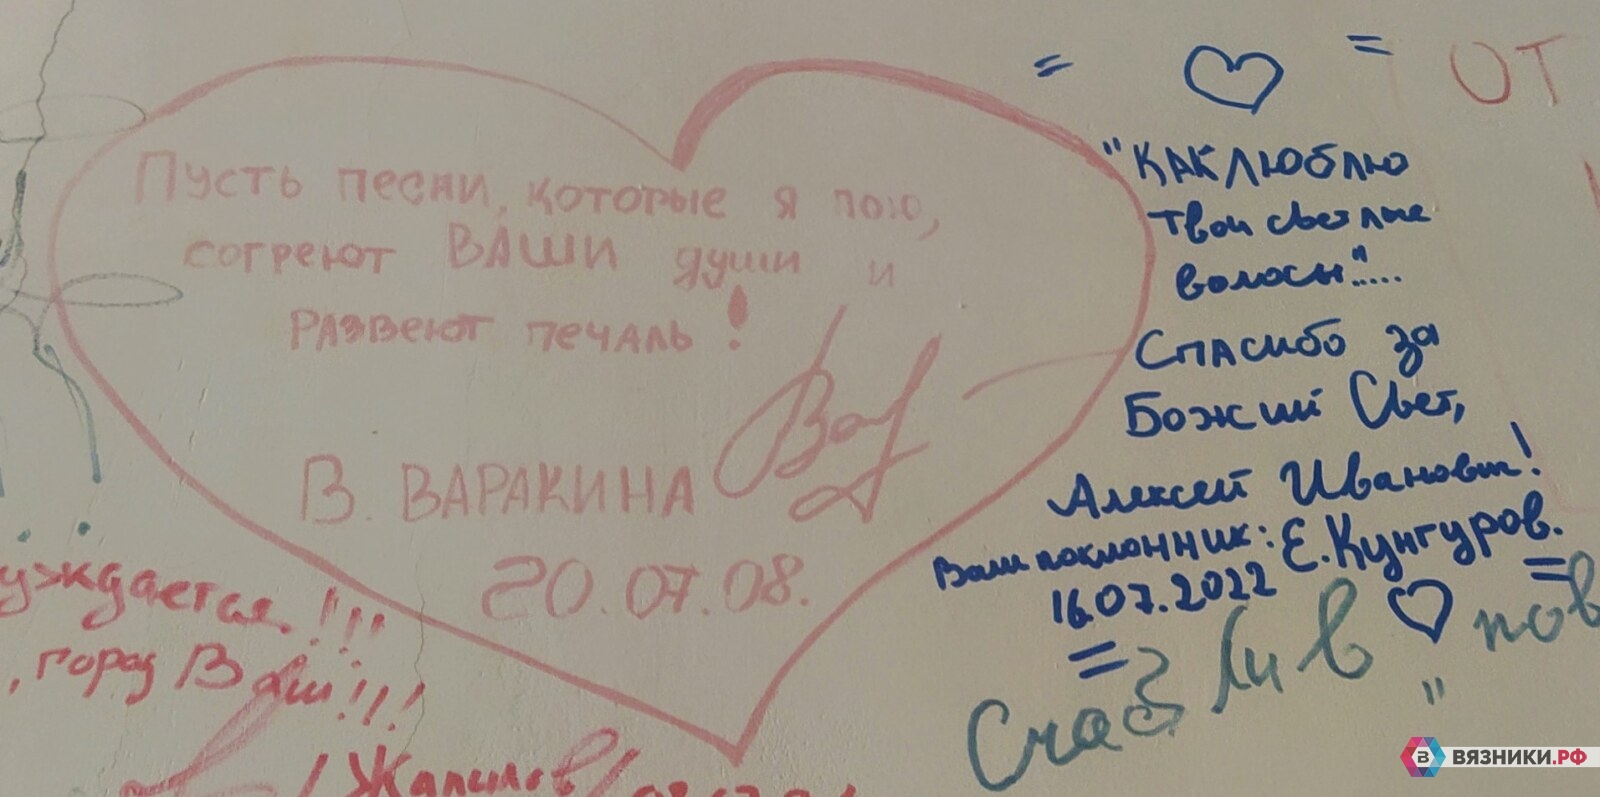 Пусть песни, которые я пою,
согреют ВАШИ души и
развеют печаль!
В. ВАРАКИНА
20.07.08.
ОТ
"КАК ЛЮБЛЮ
твои светлые
волосы".....
Спасибо за
Божий Свет,
Алексей Иванович!
Ваш поклонник: Е. Кунгуров.
16.07.2022
уждается!!!
, город Ваш!!!
Счастлив
пов
ВЯЗНИКИ.РФ